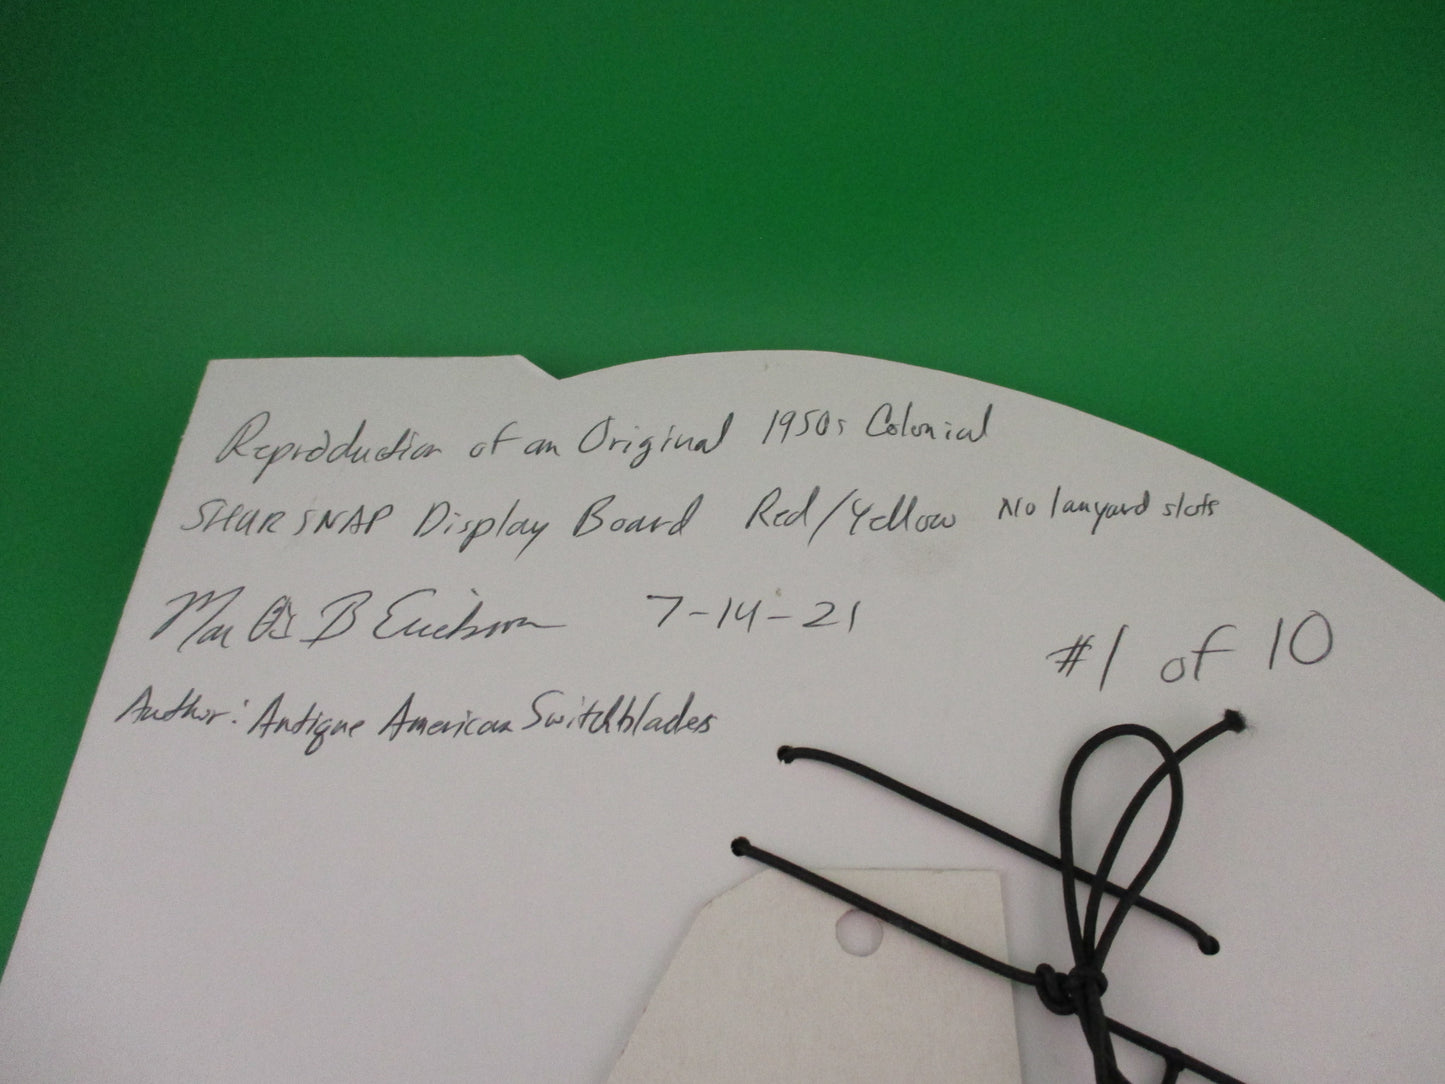 Reproduction of an Original 1950s Colonial
SHUR SNAP Display Board Red/Yellow No lanyard slots
B Erickson 7-14-21
#1 of 10
Author: Antique American Switchblades